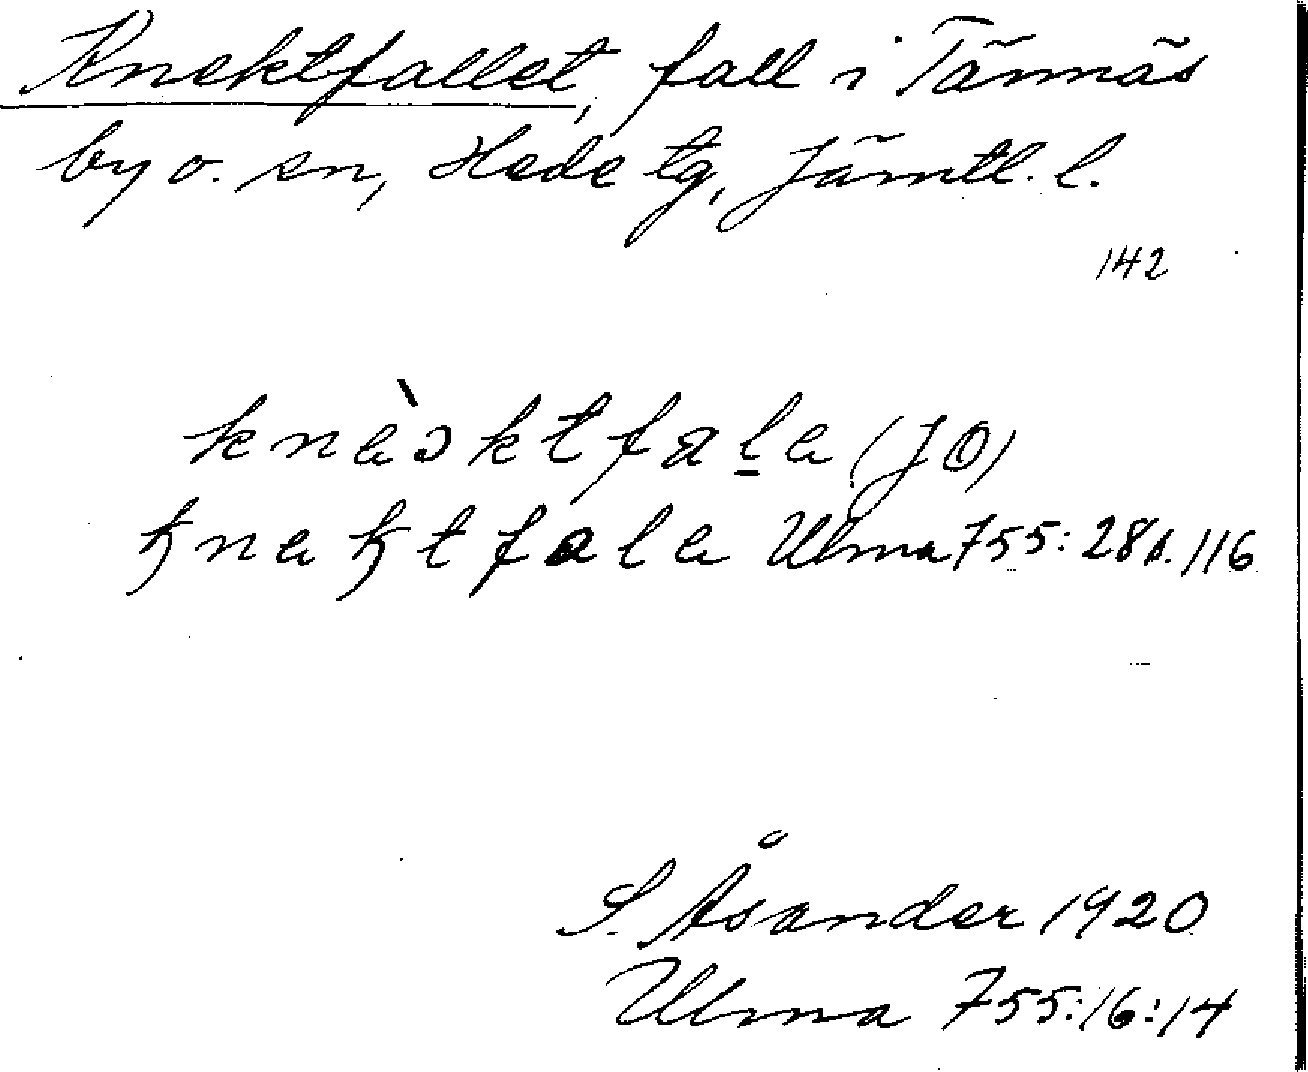 Knektfallet, fall i Tännäs
by o. sn, Hede tg, Jämtl. l.
142
knèəktfaḻa (JO)
knaktfala Ulma 755:28 s. 116
S. Åsander 1920
Ulma 755:16:14